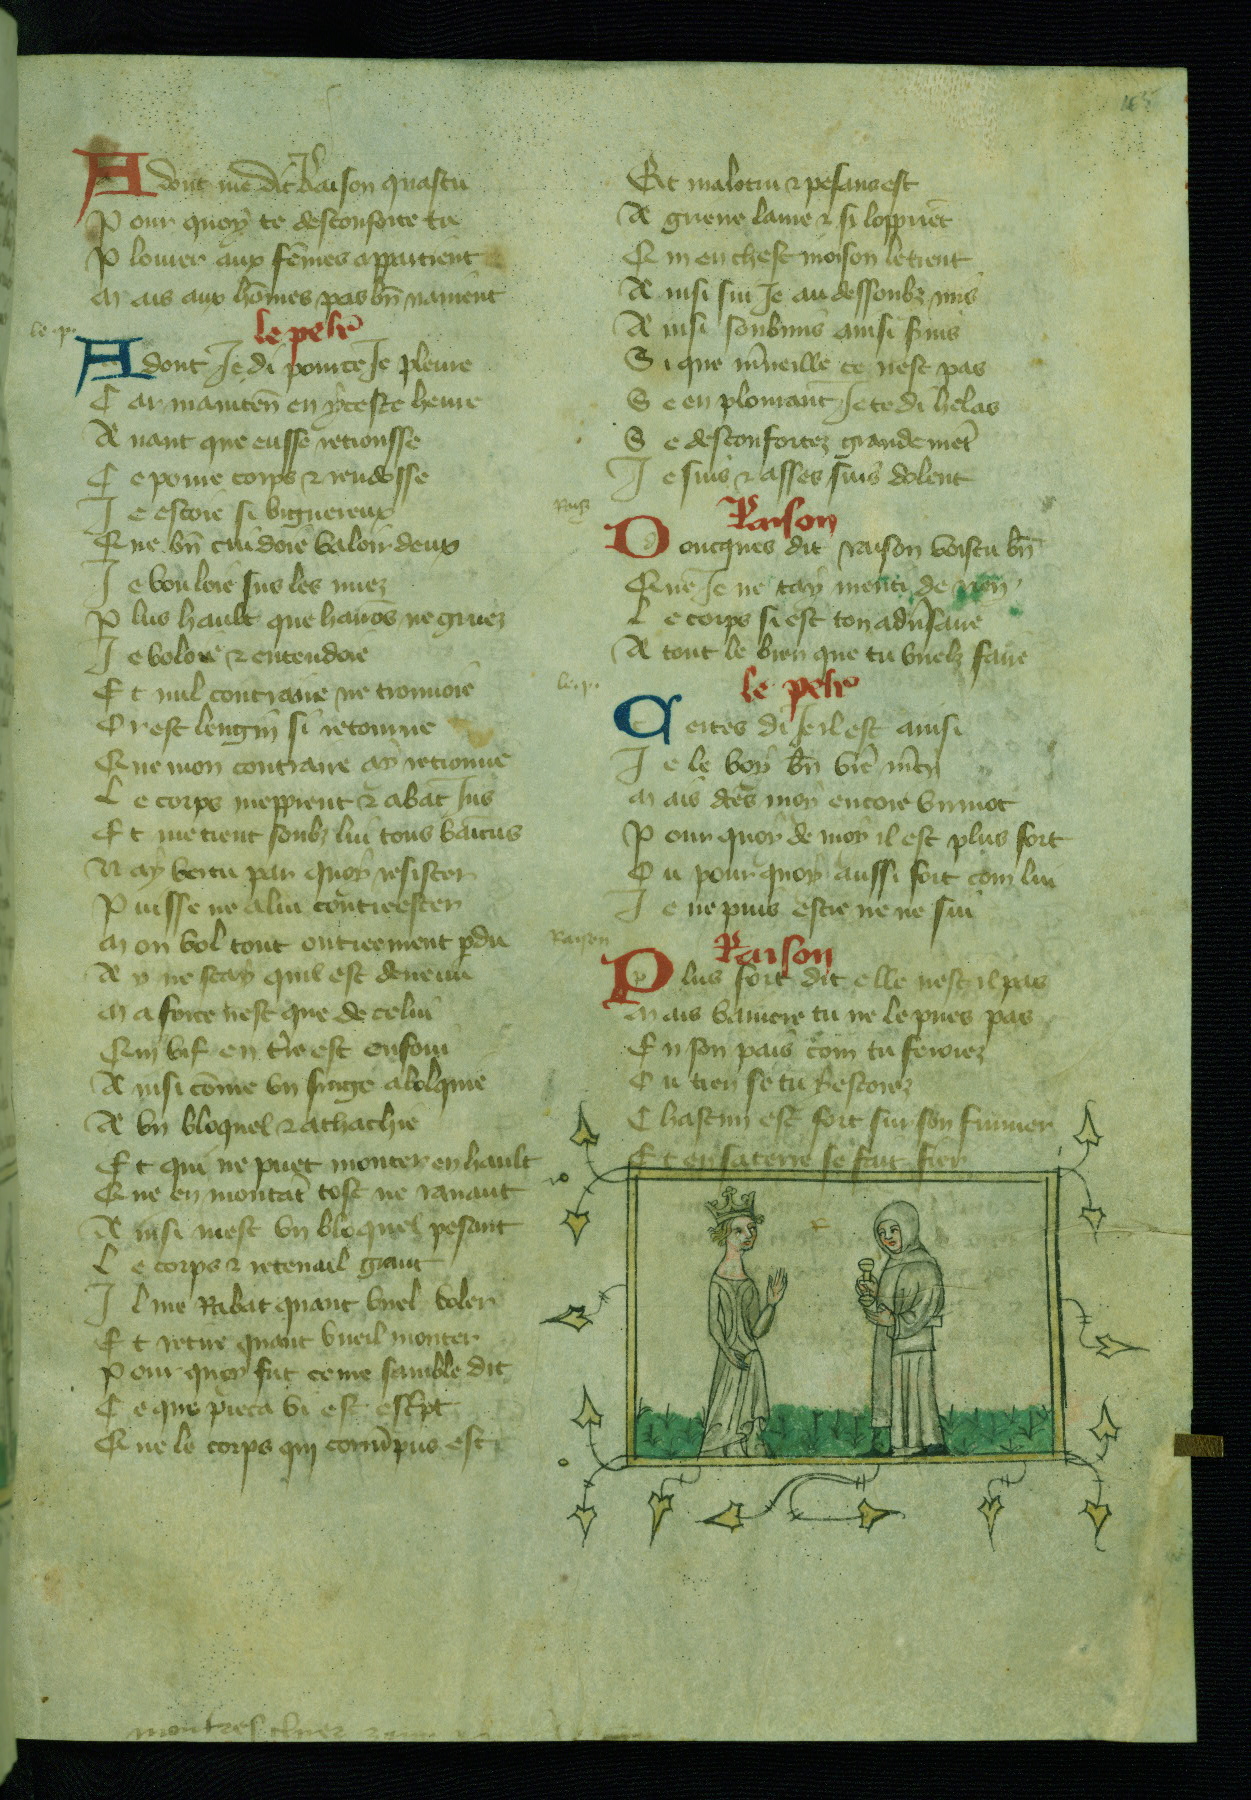 Adont me dit Raison quas tu
Pour quoy te desconforte tu
Plourer aux fẽmes appartient
Mais aux hõmes pas bñ nauient
le pelr̃
Adont Je di pour ce Je pleure
Car maintẽn en yceste heure
Auant que eusse retrousse
Ce poure corps & rendosse
Je estoie si viguereux
Que bñ cuidoie valoir deux
Je vouloie sus les nuez
Plus hault que hairõs ne gruez
Je voloie & entendoie
Et nul contraire ne trouuoie
Or est lengin si retourne
Que mon contraire ay retrouue
Le corps meppient & abat Jus
Et me tient soubz lui tous vaĩcus
Nay vertu par quoy resister
Puisse ne a lui cõtreester
Mon vol tout entierement pdu
Ay ne scay quil est deuenu
Ma force nest que de celui
Qui vif en t̃re est enfoui
Ainsi cõme vn singe a bloquie
A vn bloquel & athachie
Et qui ne puet monter en hault
Que en montãt tost ne rauant
Ainsi mest vn bloquel pesant
Le corps & retenail grant
Il me Rabat quant vuel voler
Et retire quant vueil monter
Pour quoy fut ce me samble dit
Ce que pieca vi est esc̃pt
Que le corps qui corrũpus est
Et malotru & pesans est
A grieue lame & si loppriẽt
Qui en chest moison le tient
Ainsi sui Je au dessoubz mis
Ainsi soubmis ainsi sui
Si que m̃ueille ce nest pas
Se en plourant Je te di helas
Se desconfortez grandemẽt
Je suis & asses suis dolent
Raison
Doncques dit raison vois tu bñ
Que Je ne tay menti de rien
Le corps si est ton aduersaire
A tout le bien que tu vuelz faire
le pelr̃
Certes di Je il est ainsi
Je le voy bñ vr̃e m̃cy
Mais dctẽs moy encore vn mot
Pour quoy de moy il est plus fort
Ou pour quoy aussi fort com lui
Je ne puis estre ne ne sui
Raison
Plus fort dit elle nest il pas
Mais vaincre tu ne le pues pas
En son pais com tu feroiez
Ou tien se tu y estoiez
Chascun est fort sur son fumier
Et en sa terre se fait fier
le p.
Raison